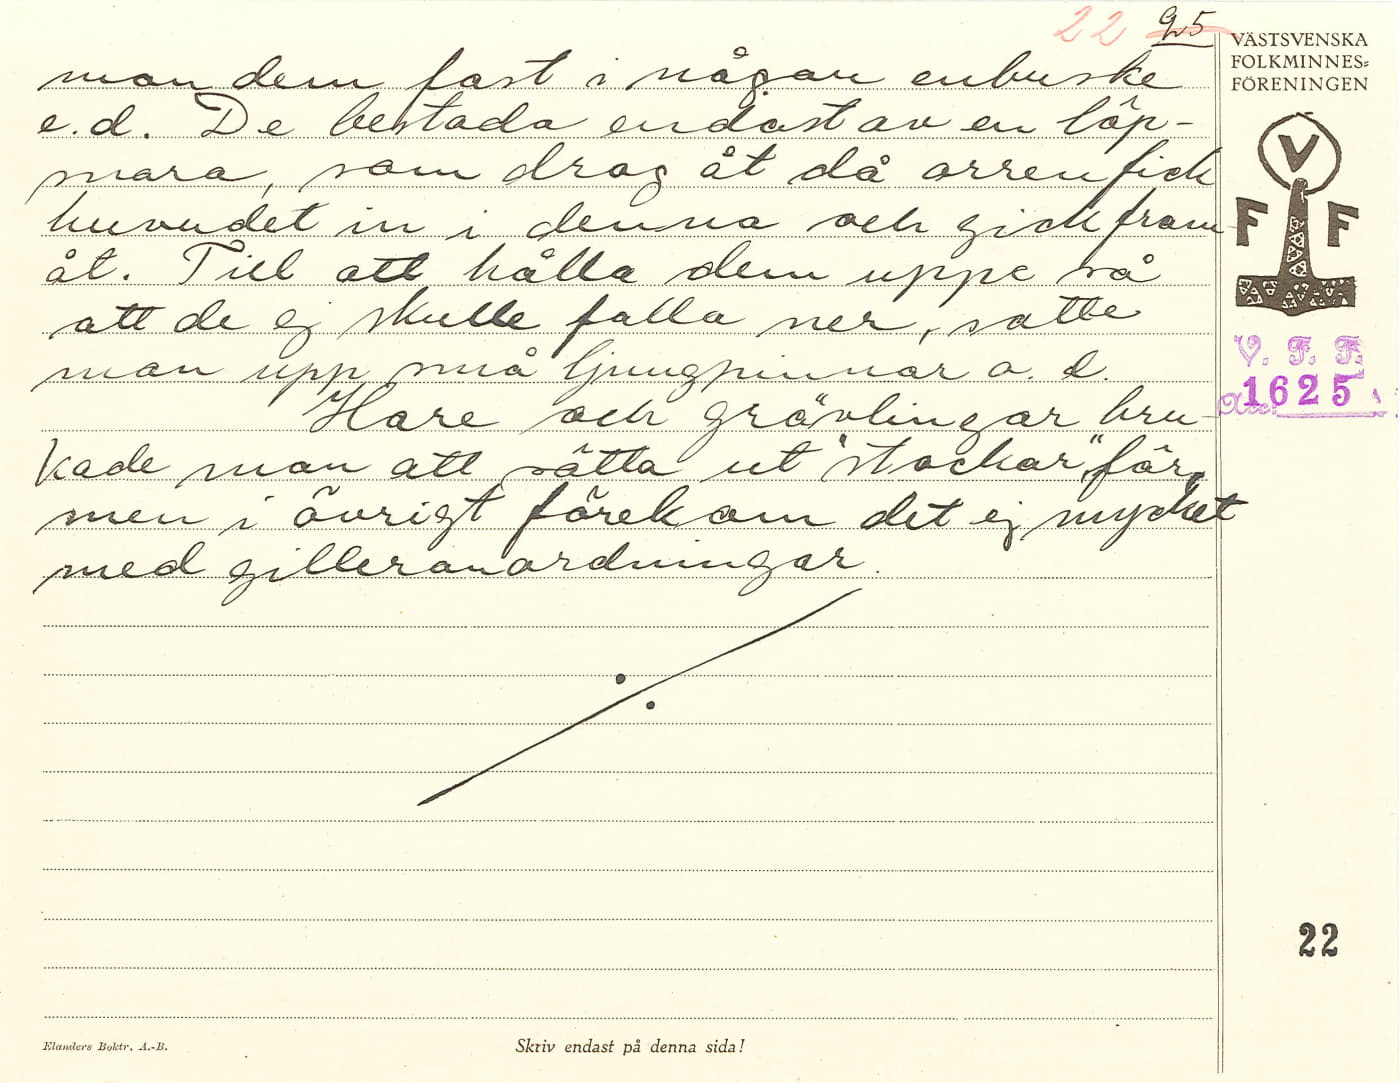 22 95
man dem fast i någon enbuske
e.d. De bestodo endast av en löp-
snara, som drog åt då orren fick
huvudet in i denna och gick fram-
åt. Till att hålla dem uppe så
att de ej skulle falla ner, satte
man upp små ljungpinnar o. d.
Hare och grävlingar bru-
kade man att sätta ut "stockar" för,
men i övrigt förekom det ej mycket
med gilleranordningar.
VÄSTSVENSKA
FOLKMINNES=
FÖRENINGEN
V
F F
V. F. F.
Acc. 1625
22
Elanders Boktr. A.-B.
Skriv endast på denna sida!